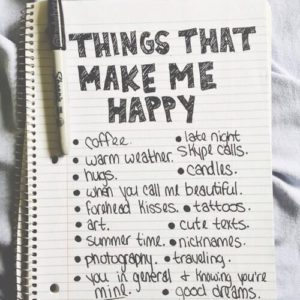 THINGS THAT
MAKE ME
HAPPY
• coffee.
• late night
skype calls.
• warm weather.
• candles.
• hugs.
• when you call me beautiful.
• forehead kisses.
• tattoos.
• art.
• cute texts.
• summer time.
• nicknames.
• photography.
• traveling.
• you in general & knowing you're
mine.
• good dreams.